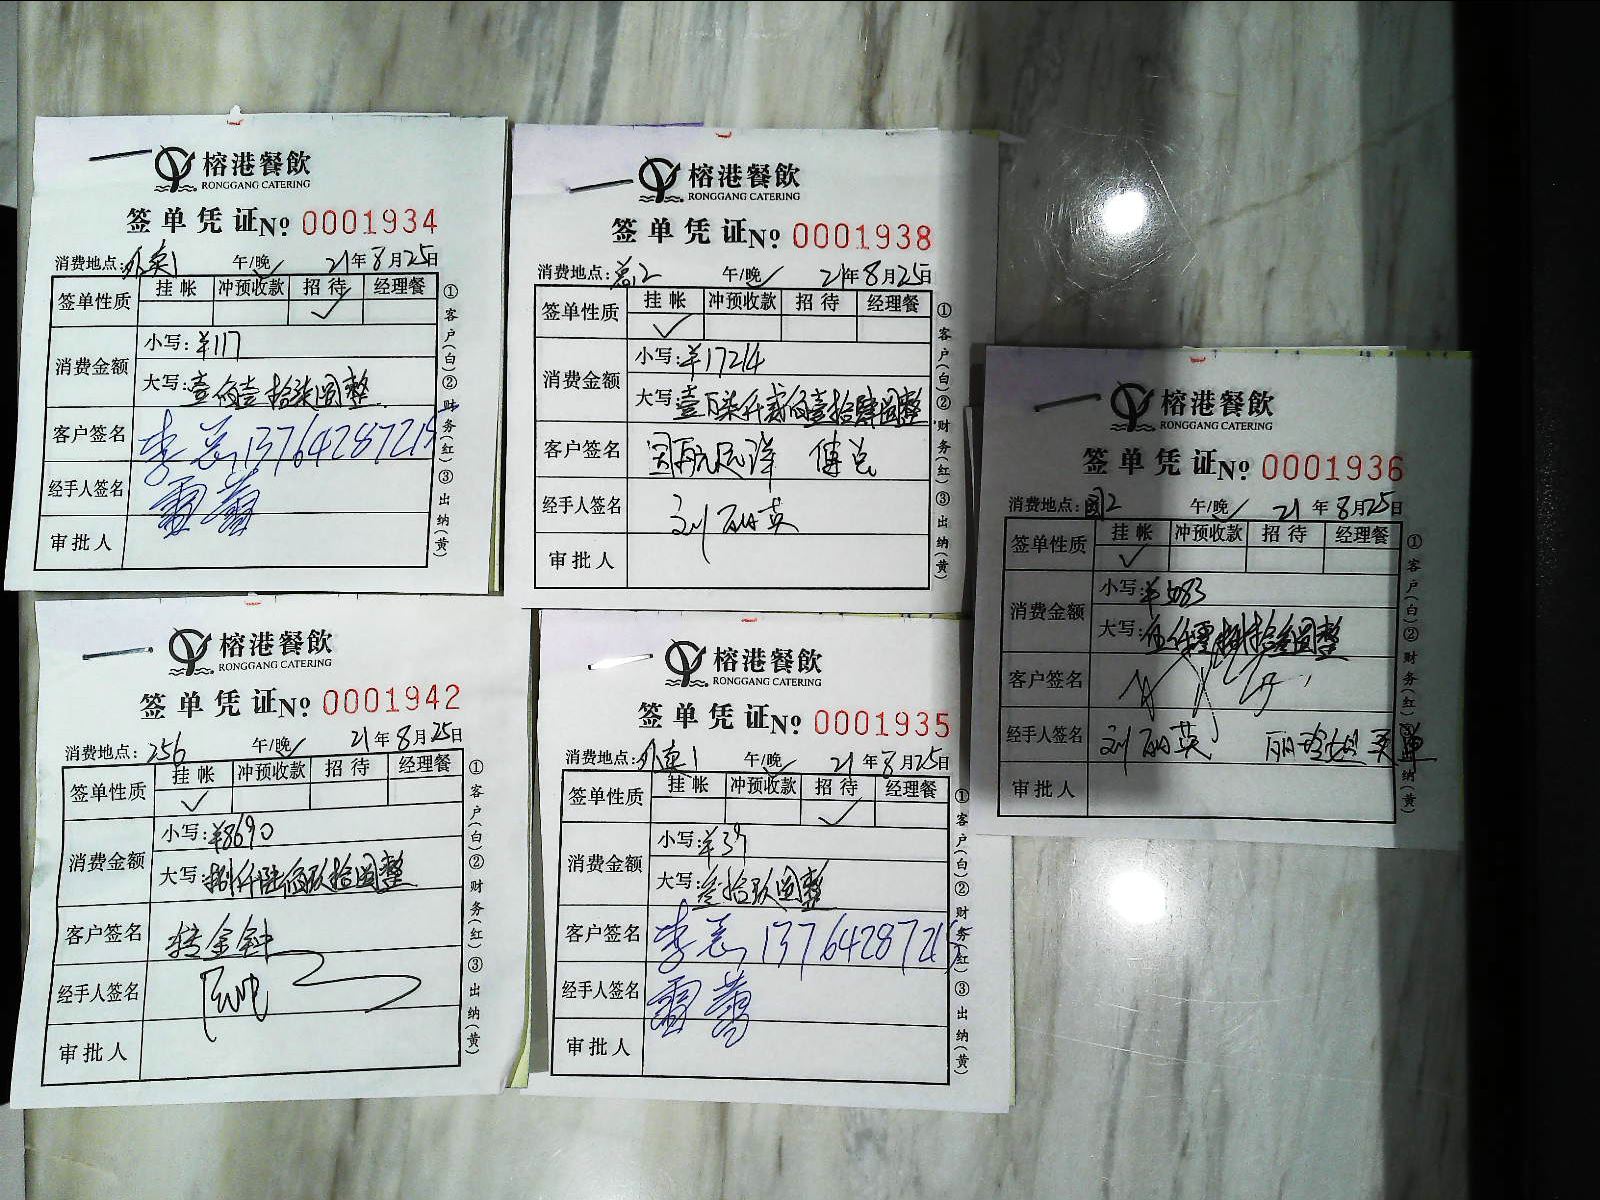 榕港餐飲
RONGGANG CATERING
签单凭证No 0001934
消费地点:外卖1 午/晚 21年8月25日
签单性质 挂帐 冲预收款 招待 经理餐
消费金额 小写:¥117
大写:壹佰壹拾柒圆整
客户签名 李总13764287215
经手人签名
审批人
①客户(白)②财务(红)③出纳(黄)
榕港餐飲
RONGGANG CATERING
签单凭证No 0001938
消费地点: 午/晚 21年8月25日
签单性质 挂帐 冲预收款 招待 经理餐
消费金额 小写:¥17214
大写:壹万柒仟贰佰壹拾肆圆整
客户签名 傅总
经手人签名 刘丽英
审批人
①客户(白)②财务(红)③出纳(黄)
榕港餐飲
RONGGANG CATERING
签单凭证No 0001936
消费地点: 午/晚 21年8月25日
签单性质 挂帐 冲预收款 招待 经理餐
消费金额 小写:¥5083
大写:伍仟零捌拾叁圆整
客户签名
经手人签名 刘丽英 买单
审批人
①客户(白)②财务(红)③出纳(黄)
榕港餐飲
RONGGANG CATERING
签单凭证No 0001942
消费地点:256 午/晚 21年8月25日
签单性质 挂帐 冲预收款 招待 经理餐
消费金额 小写:¥8690
大写:捌仟陆佰玖拾圆整
客户签名 转金钟
经手人签名
审批人
①客户(白)②财务(红)③出纳(黄)
榕港餐飲
RONGGANG CATERING
签单凭证No 0001935
消费地点:外卖1 午/晚 21年8月25日
签单性质 挂帐 冲预收款 招待 经理餐
消费金额 小写:¥39
大写:叁拾玖圆整
客户签名 李总13764287215
经手人签名
审批人
①客户(白)②财务(红)③出纳(黄)